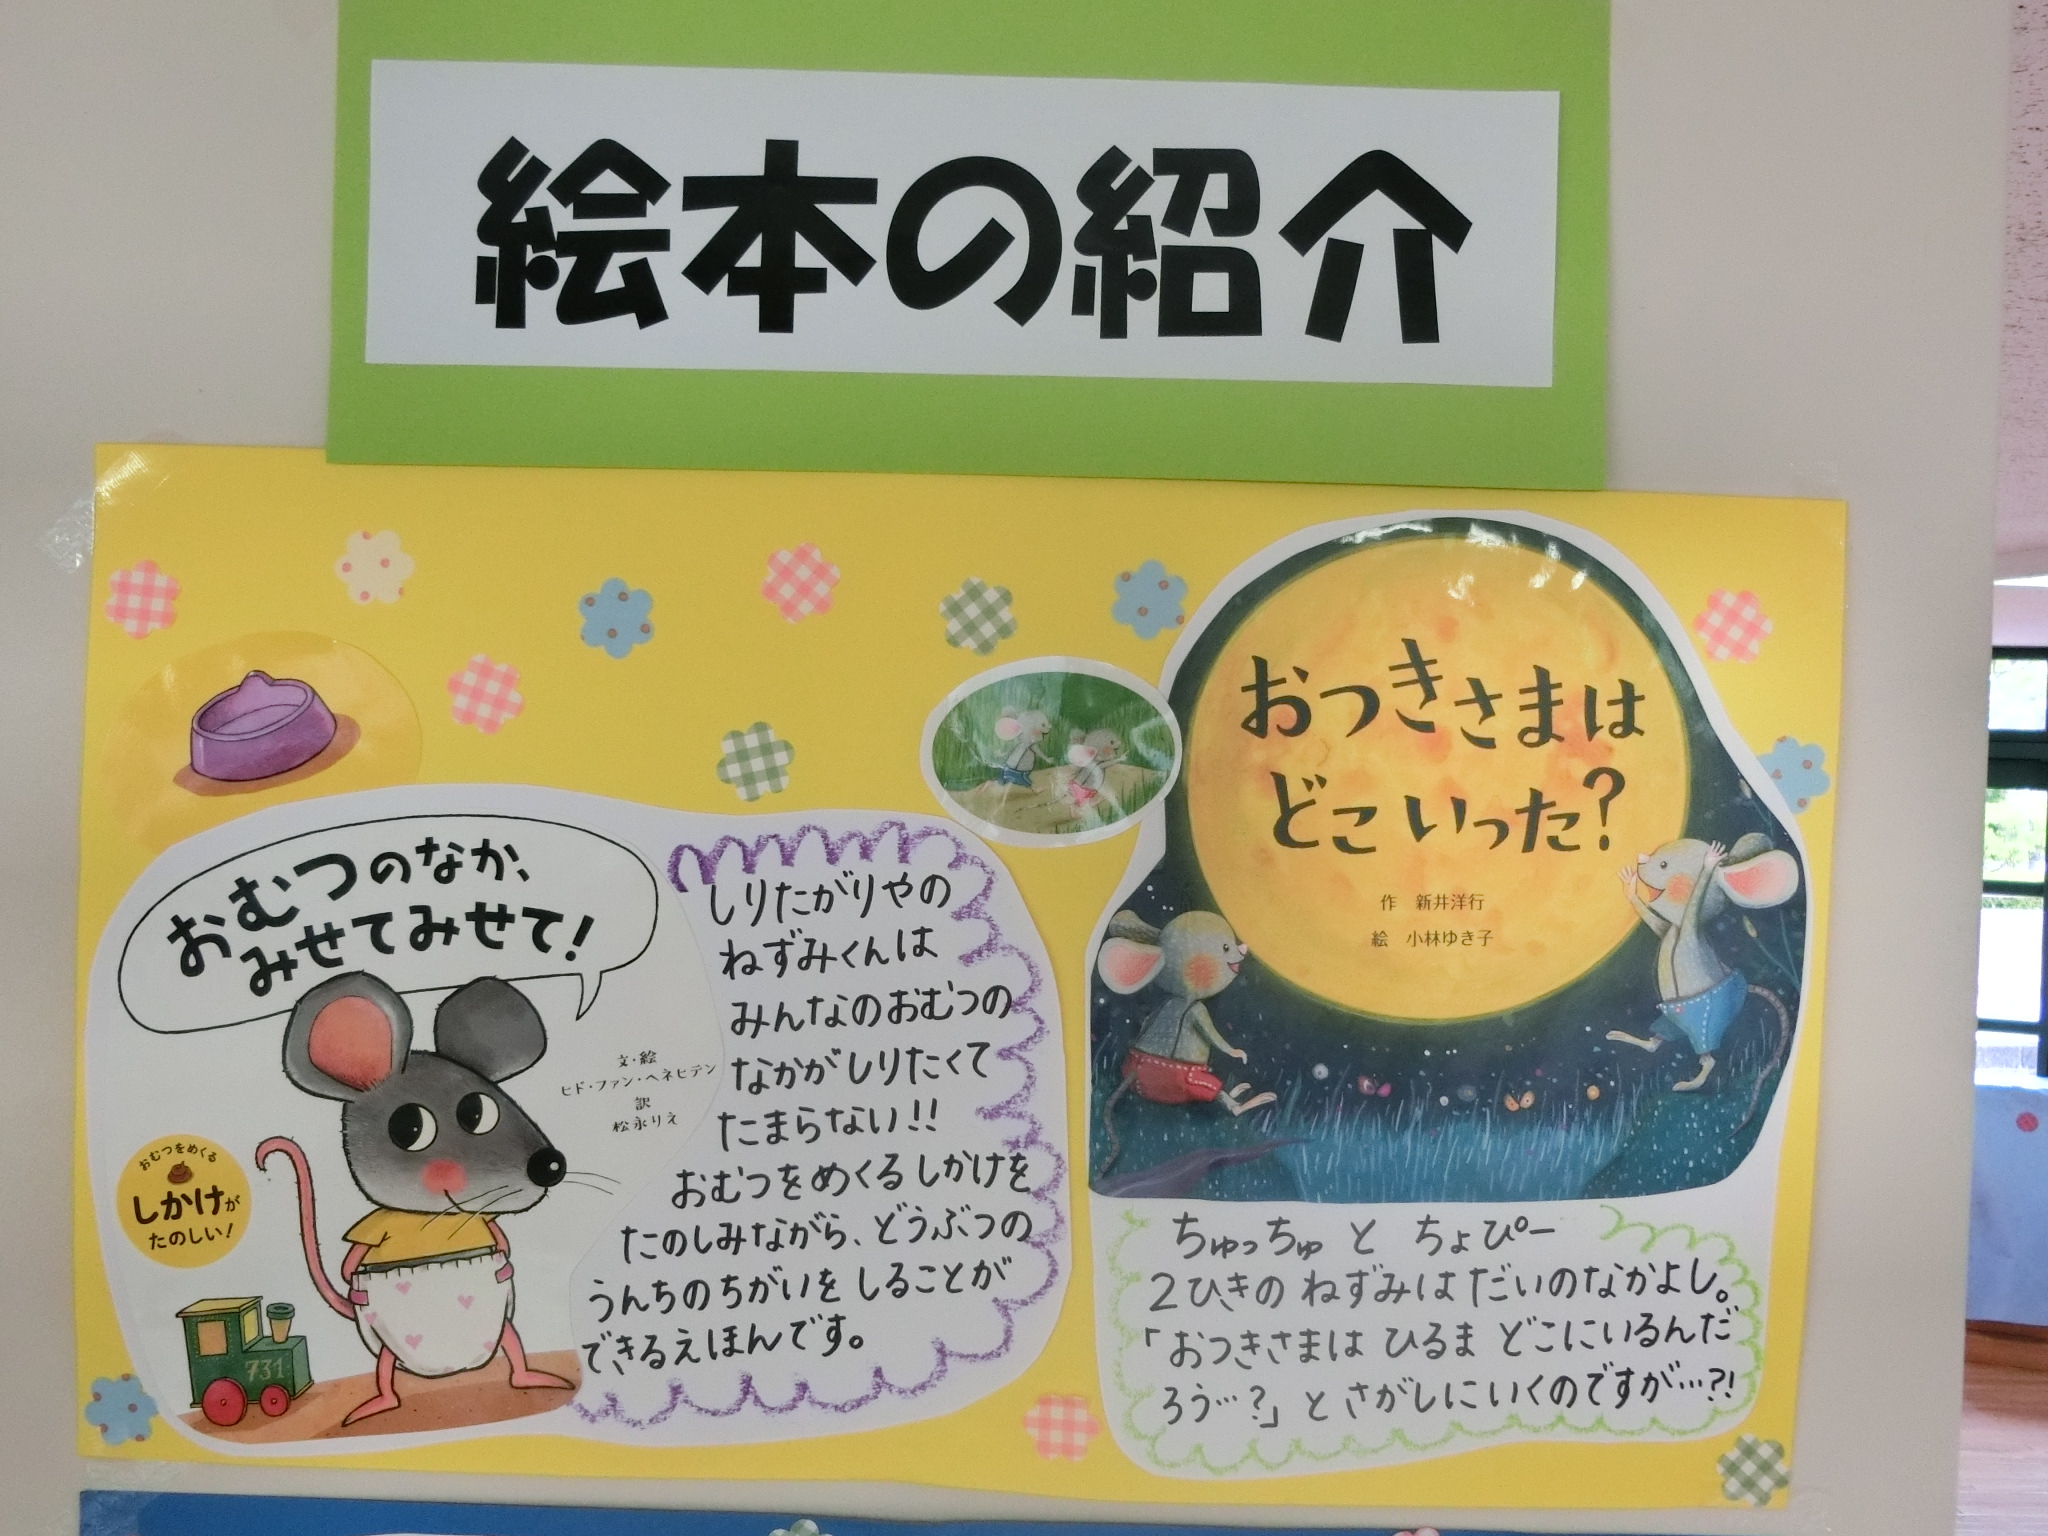 絵本の紹介
おむつのなか、
みせてみせて!
文・絵
ヒド・ファン・ヘネヒテン
訳
松永りえ
おむつをめくる
しかけが
たのしい!
731
しりたがりやの
ねずみくんは
みんなのおむつの
なかがしりたくて
たまらない!!
おむつをめくるしかけを
たのしみながら、どうぶつの
うんちのちがいをしることが
できるえほんです。
おつきさまは
どこいった?
作 新井洋行
絵 小林ゆき子
ちゅっちゅ と ちょぴー
2ひきの ねずみは だいのなかよし。
「おつきさまは ひるま どこにいるんだ
ろう…?」とさがしにいくのですが…?!